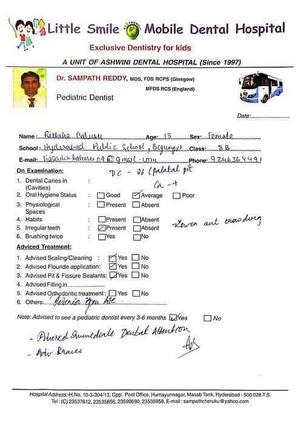 Little Smile Mobile Dental Hospital
Exclusive Dentistry for kids
A UNIT OF ASHWINI DENTAL HOSPITAL (Since 1997)
Dr. SAMPATH REDDY, MDS, FDS RCPS (Glasgow)
MFDS RCS (England)
Pediatric Dentist
Name: Age: 13 Sex: Female
School: Hyderabad Public School, Begumpet Class: 8B
E-mail: Phone:
On Examination:
1. Dental Caries in (Cavities) DC -
2. Oral Hygiene Status : Good Average Poor
3. Physiological Spaces : Present Absent
4. Habits : Present Absent
5. Irregular teeth : Present Absent Lower ant crowding
6. Brushing twice : Yes No
Adviced Treatment:
1. Advised Scaling/Cleaning : Yes No
2. Advised Flouride application: Yes No
3. Advised Pit & Fissure Sealants: Yes No
4. Advised Filling in
5. Advised Orthodontic treatment : Yes No
6. Others:
Note: Advised to see a pediatric dentist every 3-6 months Yes No
- Advised Immediate Dental Attention
- Adv Braces
Hospital Address: H.No. 10-3-304/13, Opp. Post Office, Humayunnagar, Masab Tank, Hyderabad - 500 028.
Tel: (C) 23537612, 23535656, 23590090, 23535858. E-mail : sampathcheruku@yahoo.com